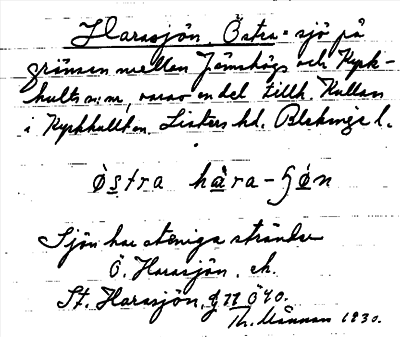 Harasjön, Östra = sjö på
gränsen mellan Jämshögs och Kyrk-
hults s:nr, varav en del tillh. Kullan
i Kyrkhult sn. Listers hd. Blekinge l.
östra hàra-ʃön
Sjön har steniga stränder
Ö. Harasjön, ek.
St. Harasjön, 1930.